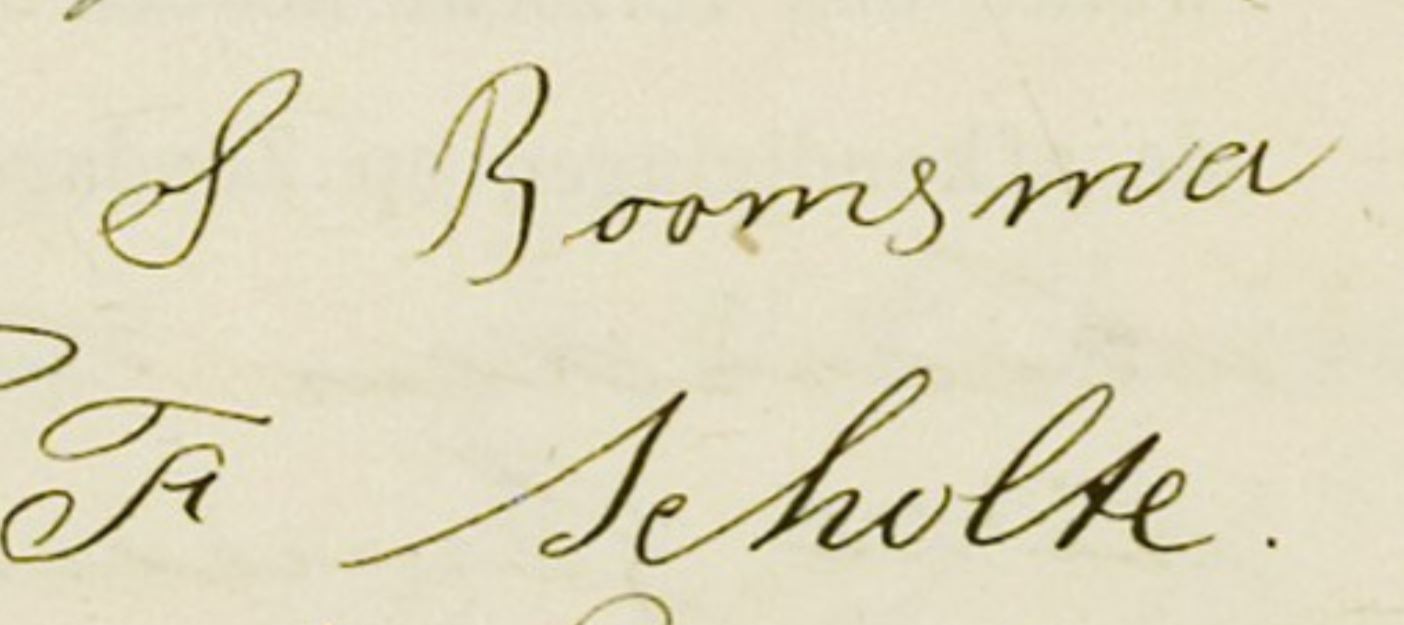 S Boomsma
F Scholte.